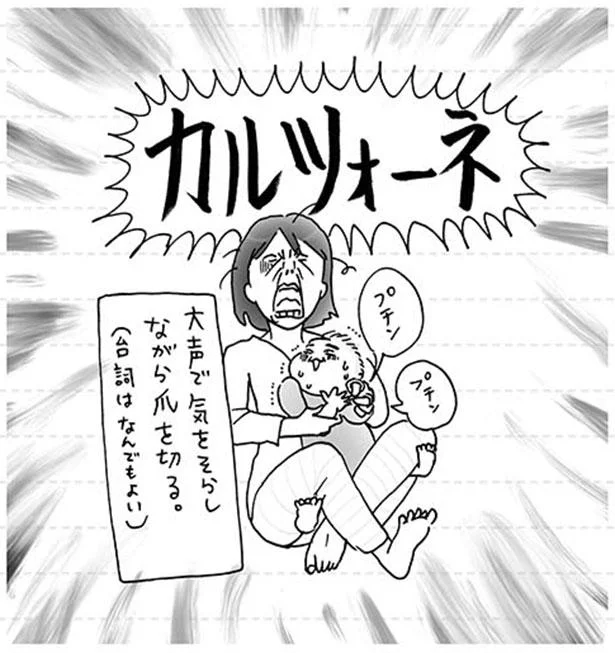 カルツォーネ
プチン
プチン
大声で気をそらし
ながら爪を切る。
（台詞はなんでもよい）